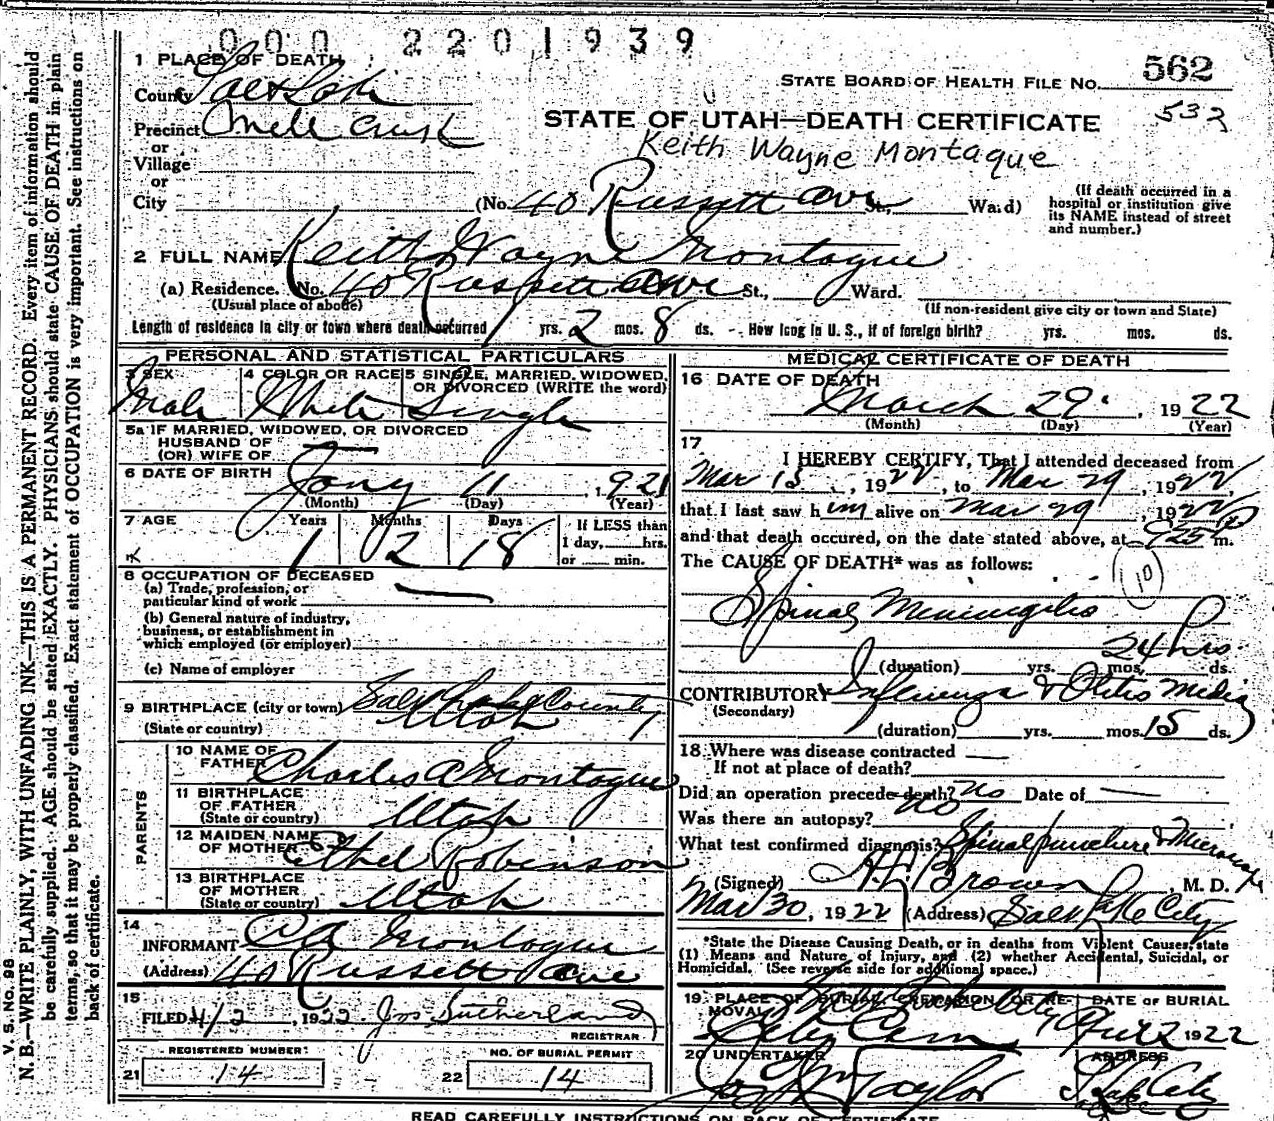 000 2201939
1 PLACE OF DEATH
County Salt Lake
Precinct Mill Creek
or
Village
or
City
STATE BOARD OF HEALTH FILE NO. 562
532
STATE OF UTAH—DEATH CERTIFICATE
Keith Wayne Montaque
(No. 40 Russett Ave St., Ward)
(If death occurred in a
hospital or institution give
its NAME instead of street
and number.)
2 FULL NAME Keith Wayne Montague
(a) Residence. No. 40 Russett Ave St., Ward.
(Usual place of abode)
(If non-resident give city or town and State)
Length of residence in city or town where death occurred 1 yrs. 2 mos. 8 ds. - How long in U. S., if of foreign birth? yrs. mos. ds.
PERSONAL AND STATISTICAL PARTICULARS
3 SEX Male
4 COLOR OR RACE White
5 SINGLE, MARRIED, WIDOWED,
OR DIVORCED (WRITE the word)
Single
5a IF MARRIED, WIDOWED, OR DIVORCED
HUSBAND OF
(OR) WIFE OF
6 DATE OF BIRTH Jany 11, 1921
(Month) (Day) (Year)
7 AGE Years Months Days
1 2 18
If LESS than
1 day, hrs.
or min.
8 OCCUPATION OF DECEASED
(a) Trade, profession, or
particular kind of work —
(b) General nature of industry,
business, or establishment in
which employed (or employer)
(c) Name of employer
9 BIRTHPLACE (city or town) Salt Lake County
(State or country) Utah
PARENTS
10 NAME OF
FATHER Charles A Montague
11 BIRTHPLACE
OF FATHER
(State or country) Utah
12 MAIDEN NAME
OF MOTHER Ethel Robinson
13 BIRTHPLACE
OF MOTHER
(State or country) Utah
14
INFORMANT C A Montague
(Address) 40 Russett Ave
15
FILED 4/2, 1922 Jos. Sutherland
REGISTRAR
REGISTERED NUMBER
21 14
NO. OF BURIAL PERMIT
22 14
MEDICAL CERTIFICATE OF DEATH
16 DATE OF DEATH
March 29, 1922
(Month) (Day) (Year)
17
I HEREBY CERTIFY, That I attended deceased from
Mar 15, 1922, to Mar 29, 1922
that I last saw him alive on Mar 29, 1922
and that death occured, on the date stated above, at 925 P m.
The CAUSE OF DEATH* was as follows:
10
Spinal Meningitis
24 hrs.
(duration) yrs. mos. ds.
CONTRIBUTORY Influenza & Otitis Media
(Secondary)
(duration) yrs. mos. 15 ds.
18 Where was disease contracted —
If not at place of death?
Did an operation precede death? no Date of —
Was there an autopsy? no
What test confirmed diagnosis? Spinal puncture & Microscope
(Signed) Brown, M. D.
Mar 30, 1922 (Address) Salt Lake City
*State the Disease Causing Death, or in deaths from Violent Causes, state
(1) Means and Nature of Injury, and (2) whether Accidental, Suicidal, or
Homicidal. (See reverse side for additional space.)
19 PLACE OF BURIAL, CREMATION OR RE-
MOVAL
Salt Lake City
City Cem
DATE OF BURIAL
1922
20 UNDERTAKER
Taylor
ADDRESS
S Lake City
READ CAREFULLY INSTRUCTIONS ON BACK OF CERTIFICATE
V. S. No. 98
N. B.—WRITE PLAINLY, WITH UNFADING INK—THIS IS A PERMANENT RECORD. Every item of information should
be carefully supplied. AGE should be stated EXACTLY. PHYSICIANS should state CAUSE OF DEATH in plain
terms, so that it may be properly classified. Exact statement of OCCUPATION is very important. See instructions on
back of certificate.